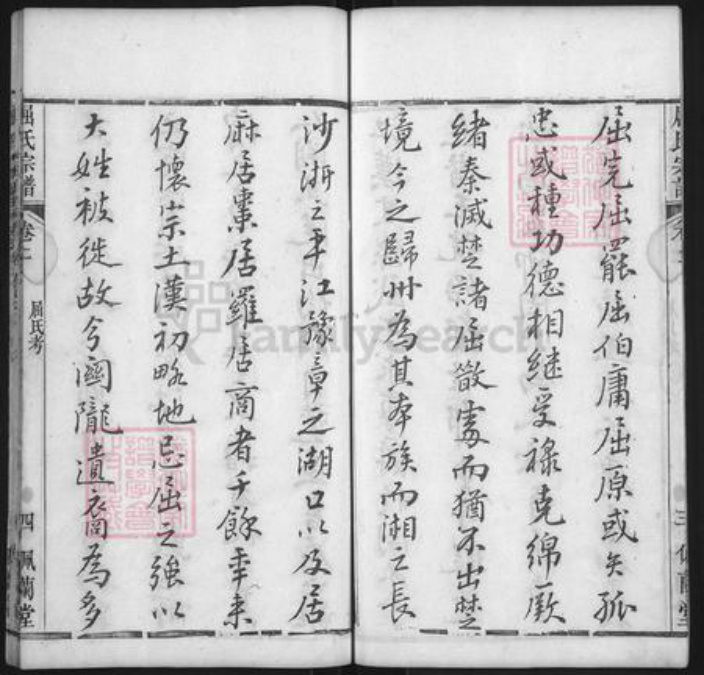 屈完屈罷屈伯庸屈原或矢孤
忠或種功德相继受祿克绵厥
緒秦滅楚諸屈散處而猶不出楚
境今之歸州為其本族而湘之長
沙浙之平江豫章之湖口以及居
麻居棗居羅居商者千餘年来
仍懷宗土漢初略地忌屈之強以
大姓被徙故今關隴遺裔為多
屈氏宗譜
卷二
屈氏考
四
珮蘭堂
屈氏宗譜
三
FamilySearch